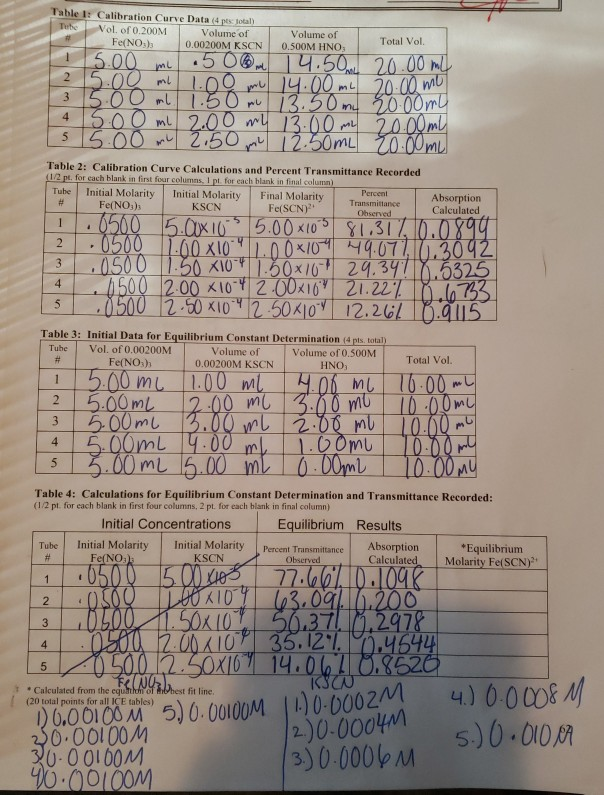 Table 1: Calibration Curve Data (4 pts: total)
Tube # Vol. of 0.200M Fe(NO₃)₃ Volume of 0.00200M KSCN Volume of 0.500M HNO₃ Total Vol.
1 5.00 mL .50 mL 14.50 mL 20.00 mL
2 5.00 mL 1.00 mL 14.00 mL 20.00 mL
3 5.00 mL 1.50 mL 13.50 mL 20.00mL
4 5.00 mL 2.00 mL 13.00 mL 20.00mL
5 5.00 mL 2.50 mL 12.50mL 20.00mL
Table 2: Calibration Curve Calculations and Percent Transmittance Recorded
(1/2 pt. for each blank in first four columns, 1 pt. for each blank in final column)
Tube # Initial Molarity Fe(NO₃)₃ Initial Molarity KSCN Final Molarity Fe(SCN)²⁺ Percent Transmittance Observed Absorption Calculated
1 .0500 5.00x10⁻⁵ 5.00x10⁻⁵ 81.31% 0.0899
2 .0500 1.00x10⁻⁴ 1.00x10⁻⁴ 49.07% 0.3092
3 .0500 1.50x10⁻⁴ 1.50x10⁻⁴ 29.34% 0.5325
4 .0500 2.00x10⁻⁴ 2.00x10⁻⁴ 21.22% 0.6733
5 .0500 2.50x10⁻⁴ 2.50x10⁻⁴ 12.26% 0.9115
Table 3: Initial Data for Equilibrium Constant Determination (4 pts. total)
Tube # Vol. of 0.00200M Fe(NO₃)₃ Volume of 0.00200M KSCN Volume of 0.500M HNO₃ Total Vol.
1 5.00 mL 1.00 mL 4.00 mL 10.00 mL
2 5.00mL 2.00 mL 3.00 mL 10.00mL
3 5.00mL 3.00 mL 2.00 mL 10.00 mL
4 5.00mL 4.00 mL 1.00mL 10.00 mL
5 5.00 mL 5.00 mL 0.00ml 10.00 mL
Table 4: Calculations for Equilibrium Constant Determination and Transmittance Recorded:
(1/2 pt. for each blank in first four columns, 2 pt. for each blank in final column)
Initial Concentrations Equilibrium Results
Tube # Initial Molarity Fe(NO₃)₃ Initial Molarity KSCN Percent Transmittance Observed Absorption Calculated *Equilibrium Molarity Fe(SCN)²⁺
1 .0500 5.00x10⁻⁵ 77.66% 0.1098
2 .0500 1.00x10⁻⁴ 63.09% 0.200
3 .0500 1.50x10⁻⁴ 50.37% 0.2978
4 .0500 2.00x10⁻⁴ 35.12% 0.4544
5 .0500 2.50x10⁻⁴ 14.06% 0.8520
* Calculated from the equation of the best fit line.
(20 total points for all ICE tables)
Fe(NO₃)₃ KSCN
1) 0.00100M 5.) 0.00100M 1.) 0.0002M 4.) 0.0008 M
2) 0.00100M 2.) 0.0004M 5.) 0.0010M
3) 0.00100M 3.) 0.0006M
4) 0.00100M